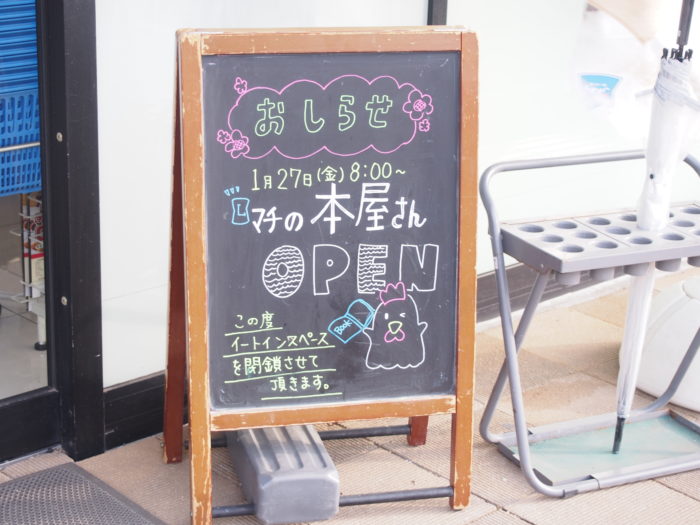 おしらせ
1月27日(金)8:00〜
L マチの本屋さん
OPEN
Book
この度
イートインスペース
を閉鎖させて
頂きます。